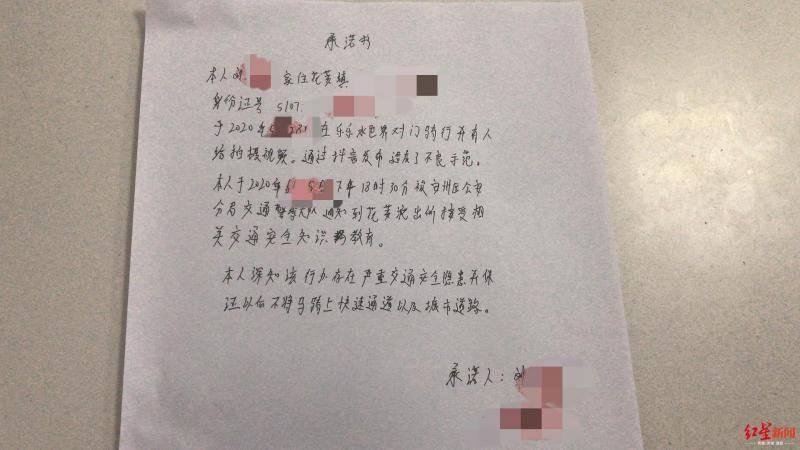 承诺书
本人刘 家住花荄镇
身份证号 5107
于2020年 在乐乐水世界对门骑行并有人
给拍摄视频。通过抖音发布造成了不良示范。
本人于2020年 5 下午18时30分被安州区公安
分局交通警察大队通知到花荄派出所接受相
关交通安全知识 教育。
本人深知该行为存在严重交通安全隐患并保
证以后不将马骑上快速通道以及城市道路。
承诺人：刘
红星新闻